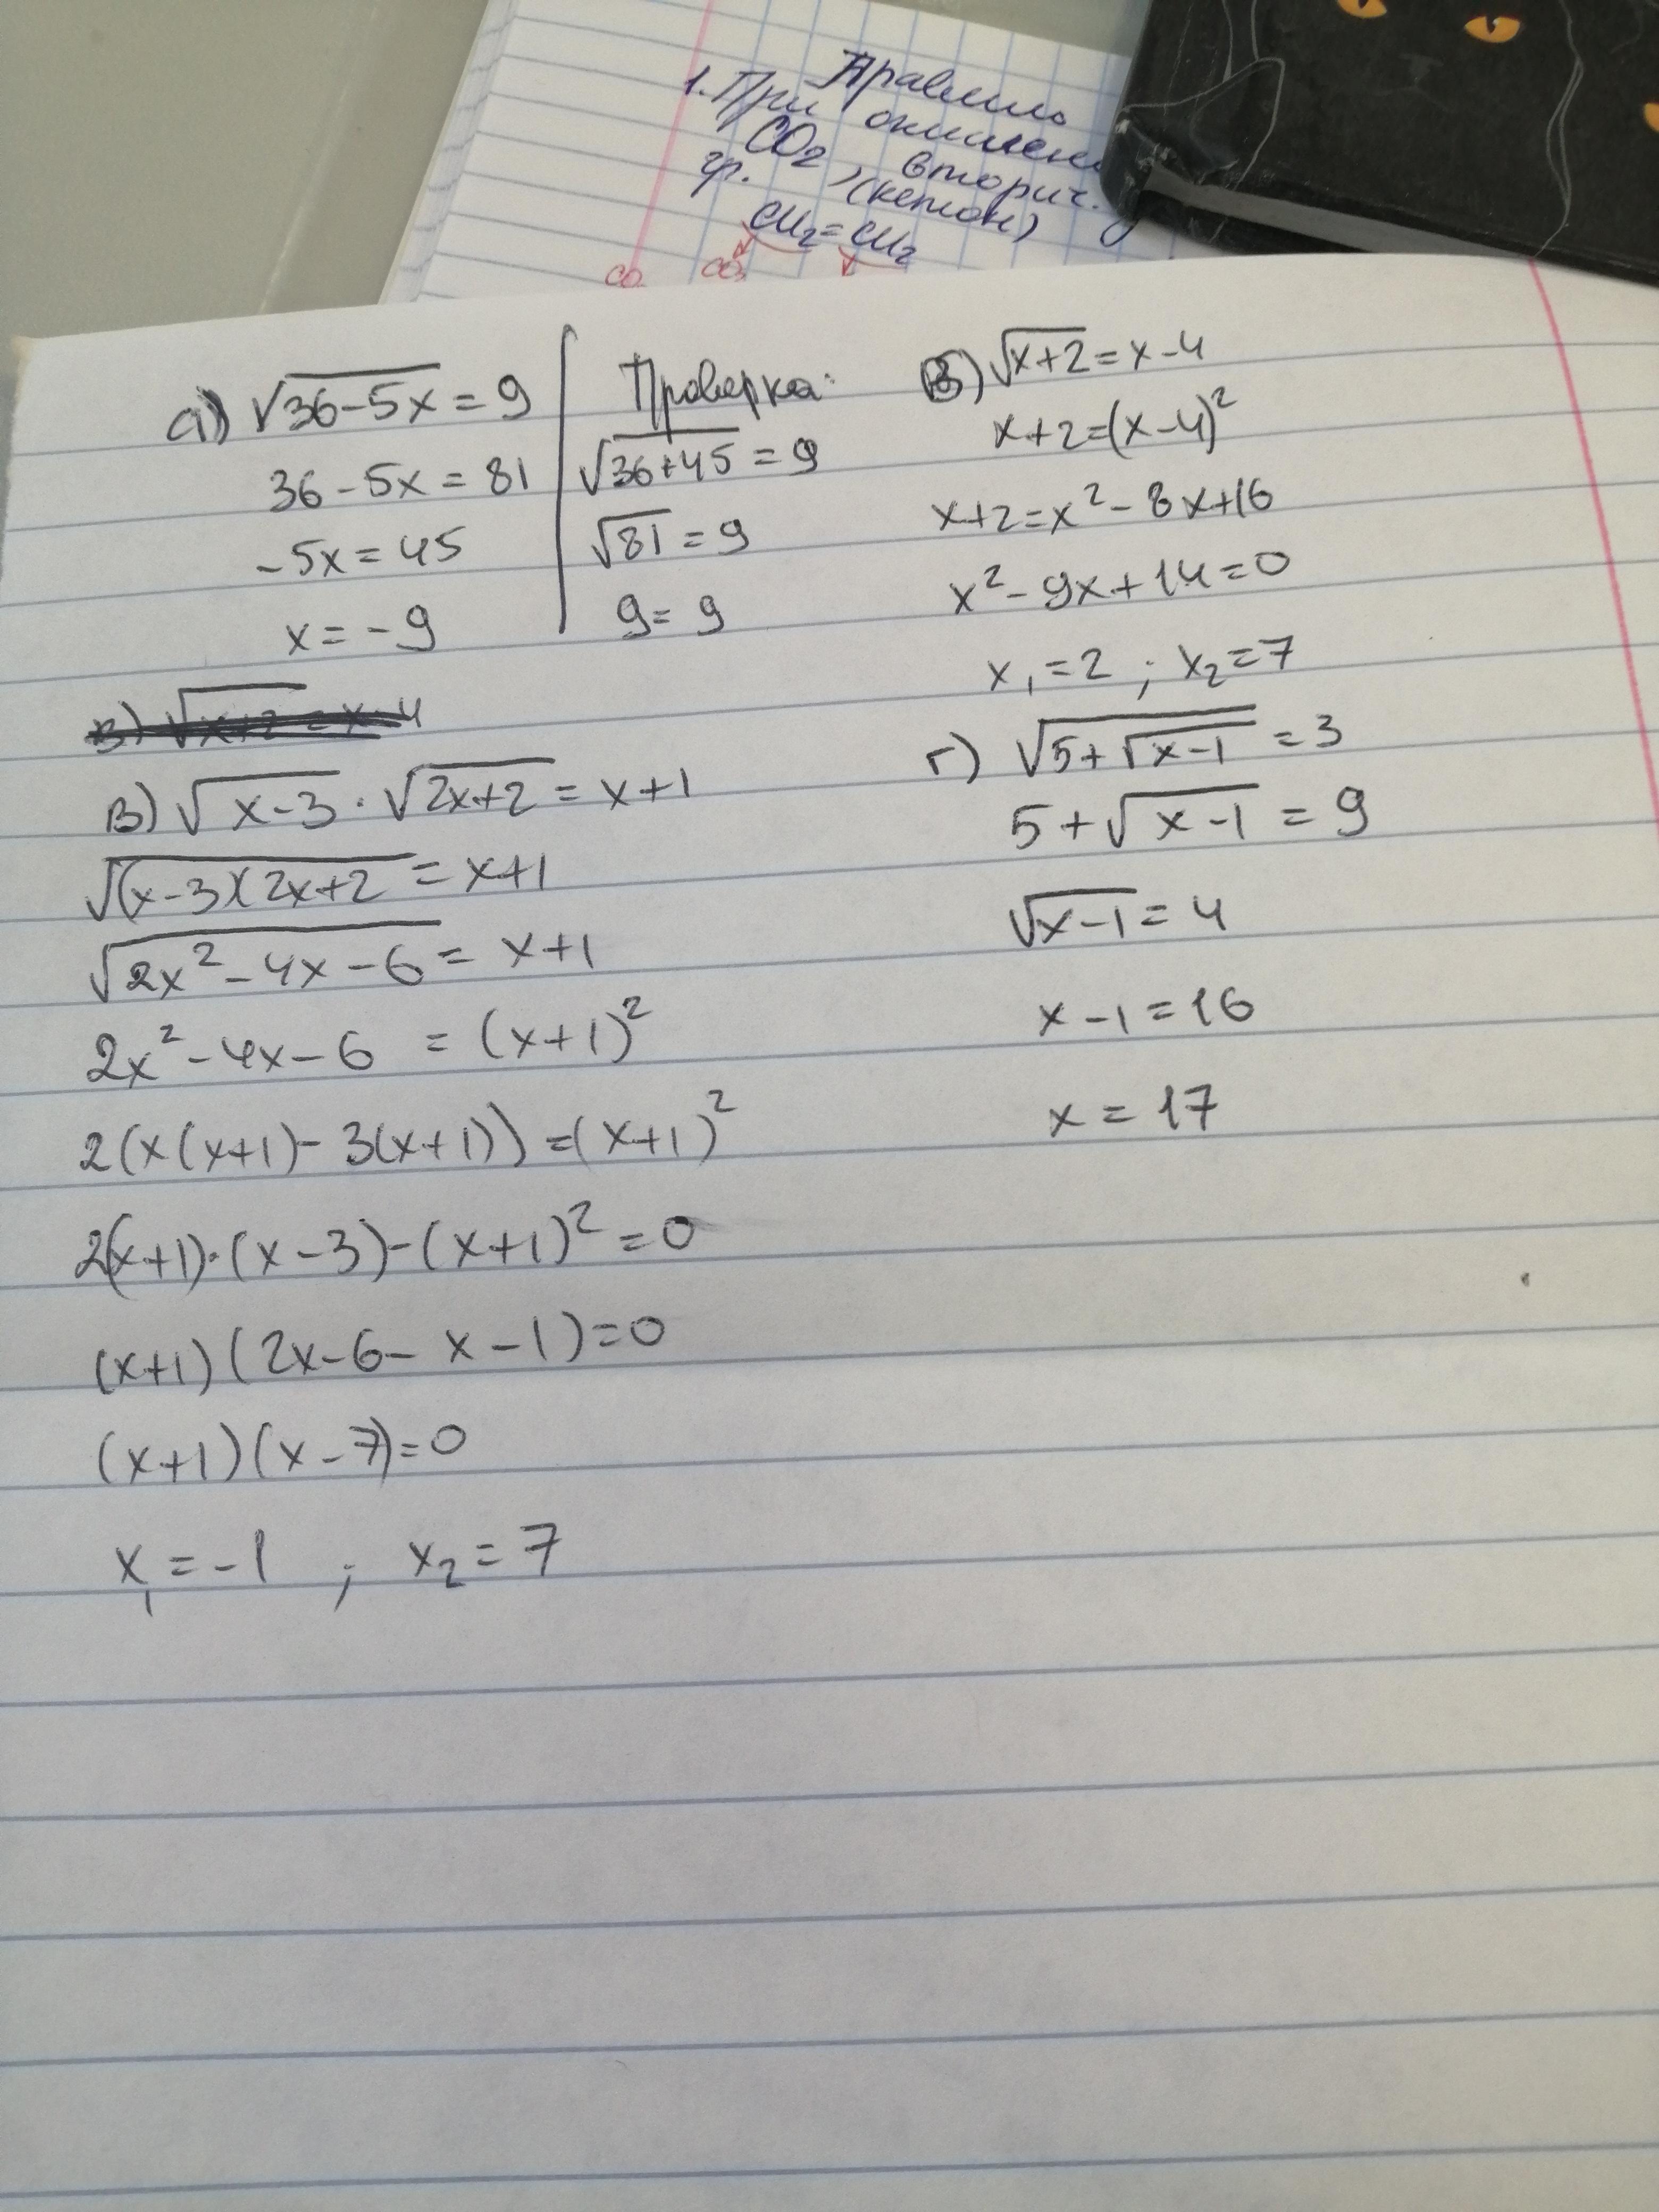 Правило
1. При окислен
CO₂, вторич.
гр. (кетон)
CH₂=CH₂
CO₂
а) √(36-5x) = 9
36-5x = 81
-5x = 45
x = -9
Проверка:
√(36+45) = 9
√81 = 9
9 = 9
Б) √(x+2) = x-4
x+2=(x-4)²
x+2=x²-8x+16
x²-9x+14=0
x₁=2 ; x₂=7
в) √(x+2) = x-4
в) √(x-3) · √(2x+2) = x+1
√((x-3)(2x+2) = x+1
√(2x²-4x-6) = x+1
2x²-4x-6 = (x+1)²
2(x(x+1)-3(x+1))=(x+1)²
2(x+1)·(x-3)-(x+1)²=0
(x+1)(2x-6-x-1)=0
(x+1)(x-7)=0
x₁=-1 ; x₂=7
г) √(5+√(x-1)) = 3
5+√(x-1) = 9
√(x-1) = 4
x-1=16
x = 17